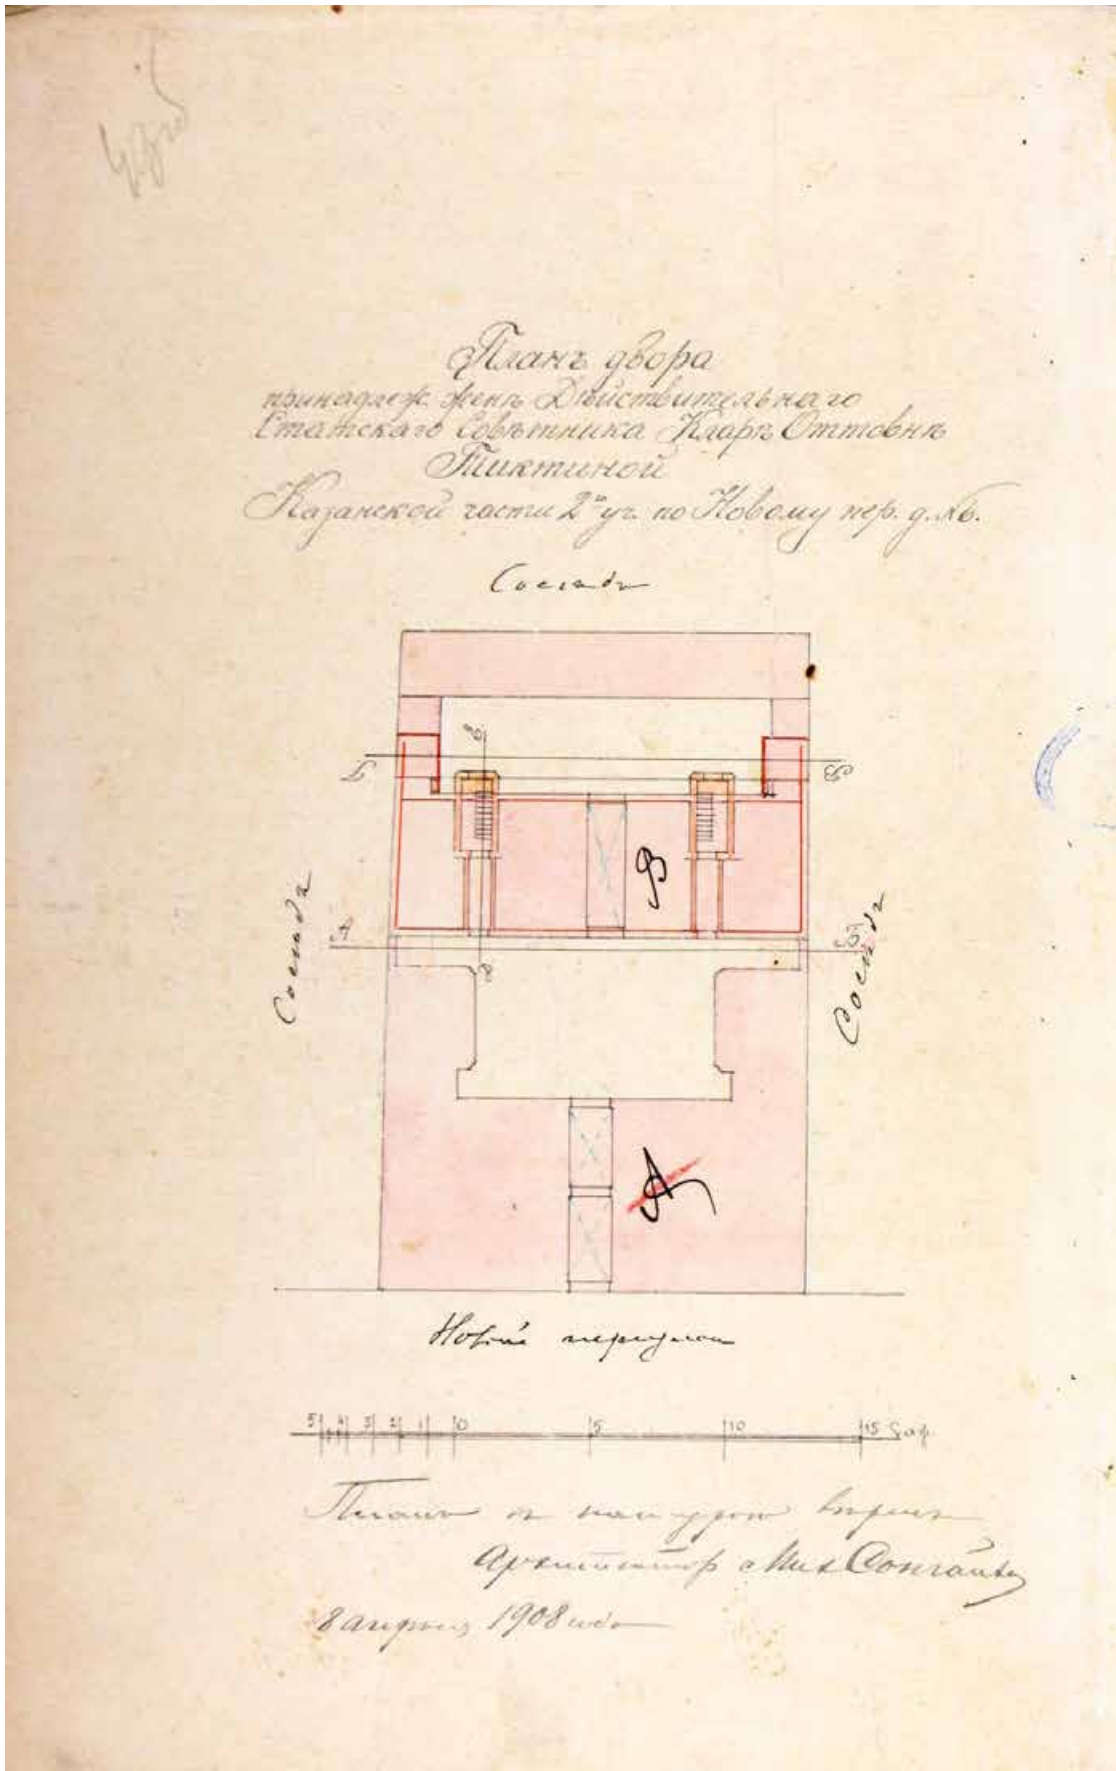 Планъ двора
принадлеж. женѣ Дѣйствительнаго
Статскаго Совѣтника Кларѣ Оттовнѣ
Тиктиной
Казанской части 2го уч. по Новому пер. д. №6.
Сосѣдъ
В
Сосѣдъ
Сосѣдъ
А
Новый переулокъ
5 4 3 2 1 0 5 10 15 саж.
Планъ съ натурою вѣренъ
Архитекторъ Мих Сонгайло
8 апрѣля 1908 года